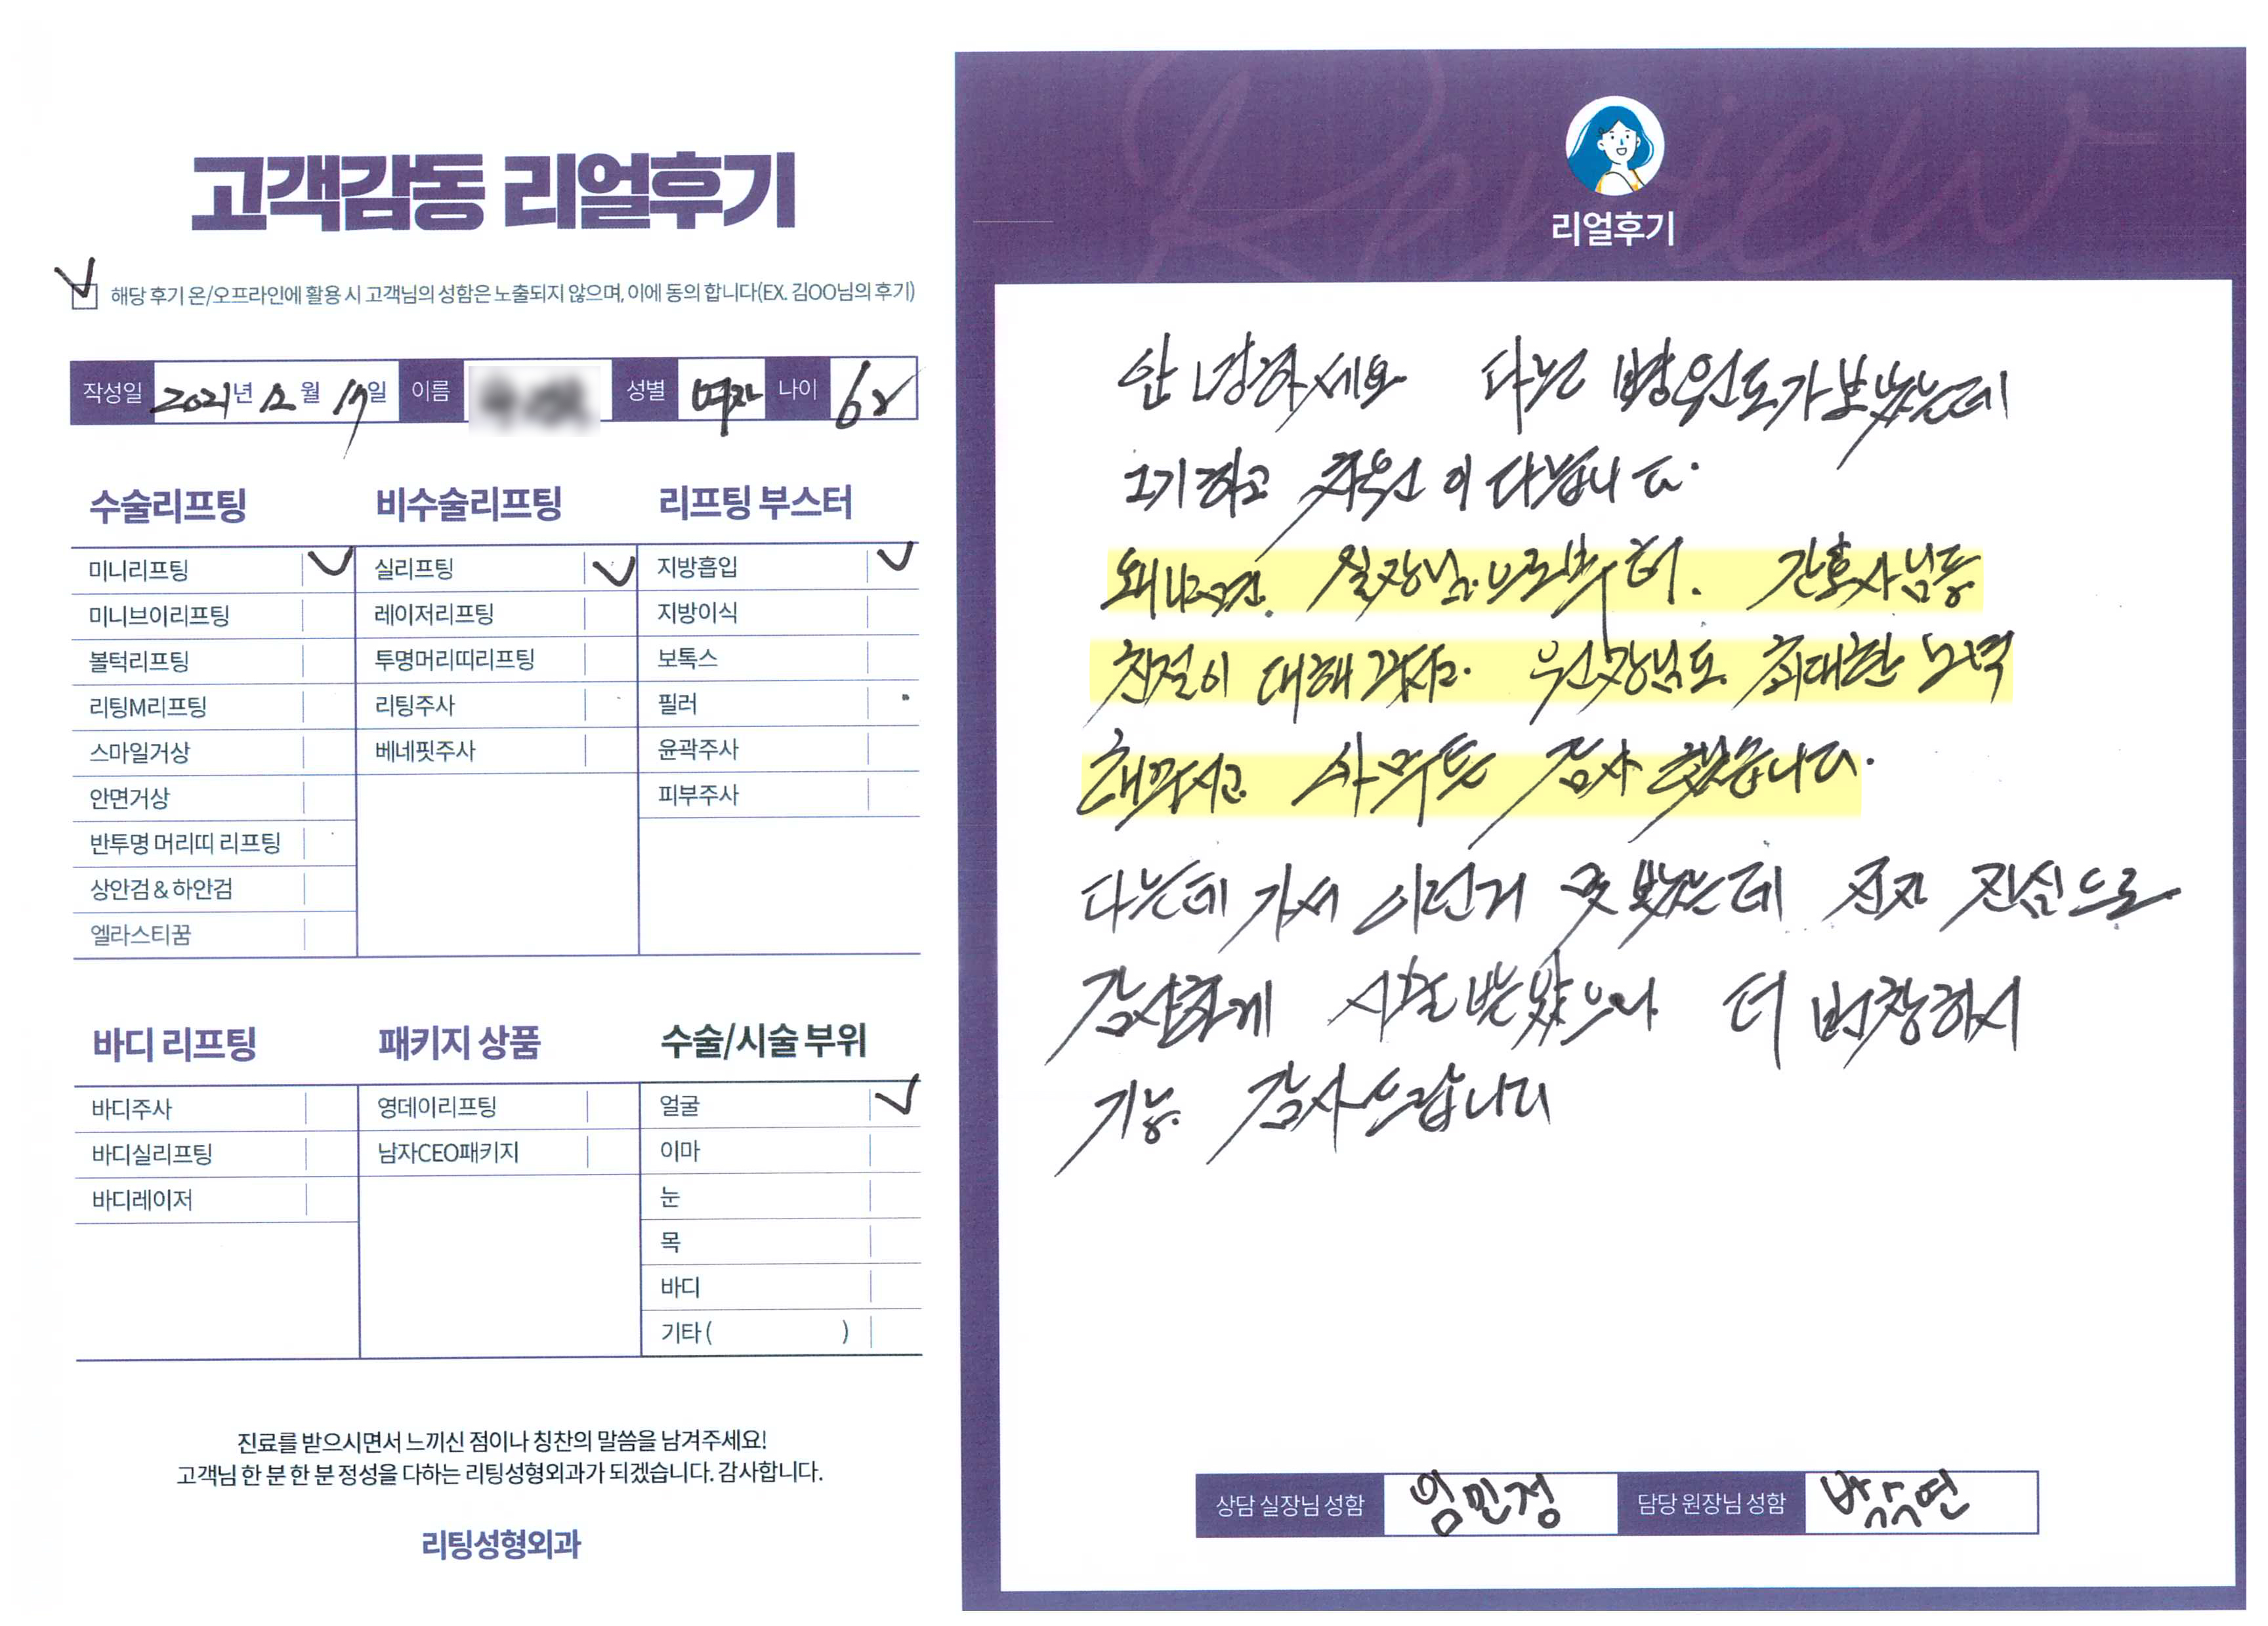 고객감동 리얼후기
해당 후기 온/오프라인에 활용 시 고객님의 성함은 노출되지 않으며, 이에 동의 합니다(EX. 김OO님의 후기)
작성일 2021년 12월 17일 이름 성별 여자 나이
수술리프팅
미니리프팅
미니브이리프팅
볼턱리프팅
리팅M리프팅
스마일거상
안면거상
반투명 머리띠 리프팅
상안검 & 하안검
엘라스티꿈
비수술리프팅
실리프팅
레이저리프팅
투명머리띠리프팅
리팅주사
베네핏주사
리프팅 부스터
지방흡입
지방이식
보톡스
필러
윤곽주사
피부주사
바디 리프팅
바디주사
바디실리프팅
바디레이저
패키지 상품
영데이리프팅
남자CEO패키지
수술/시술 부위
얼굴
이마
눈
목
바디
기타 ( )
진료를 받으시면서 느끼신 점이나 칭찬의 말씀을 남겨주세요!
고객님 한 분 한 분 정성을 다하는 리팅성형외과가 되겠습니다. 감사합니다.
리팅성형외과
Review
리얼후기
안녕하세요 다른 병원도 가보았는데
거기하고 차원이 다릅니다.
왜냐하면. 실장님.으로부터. 간호사님등
친절이 대해주시고. 원장님도. 최대한 노력
해주시고. 아무튼 감사했습니다.
다른데 가서 이런거 못 봤는데 진짜 진심으로
감사하게 시술 받았으니 더 번창하시
기를. 감사드립니다
상담 실장님 성함 임민정 담당 원장님 성함 박수연